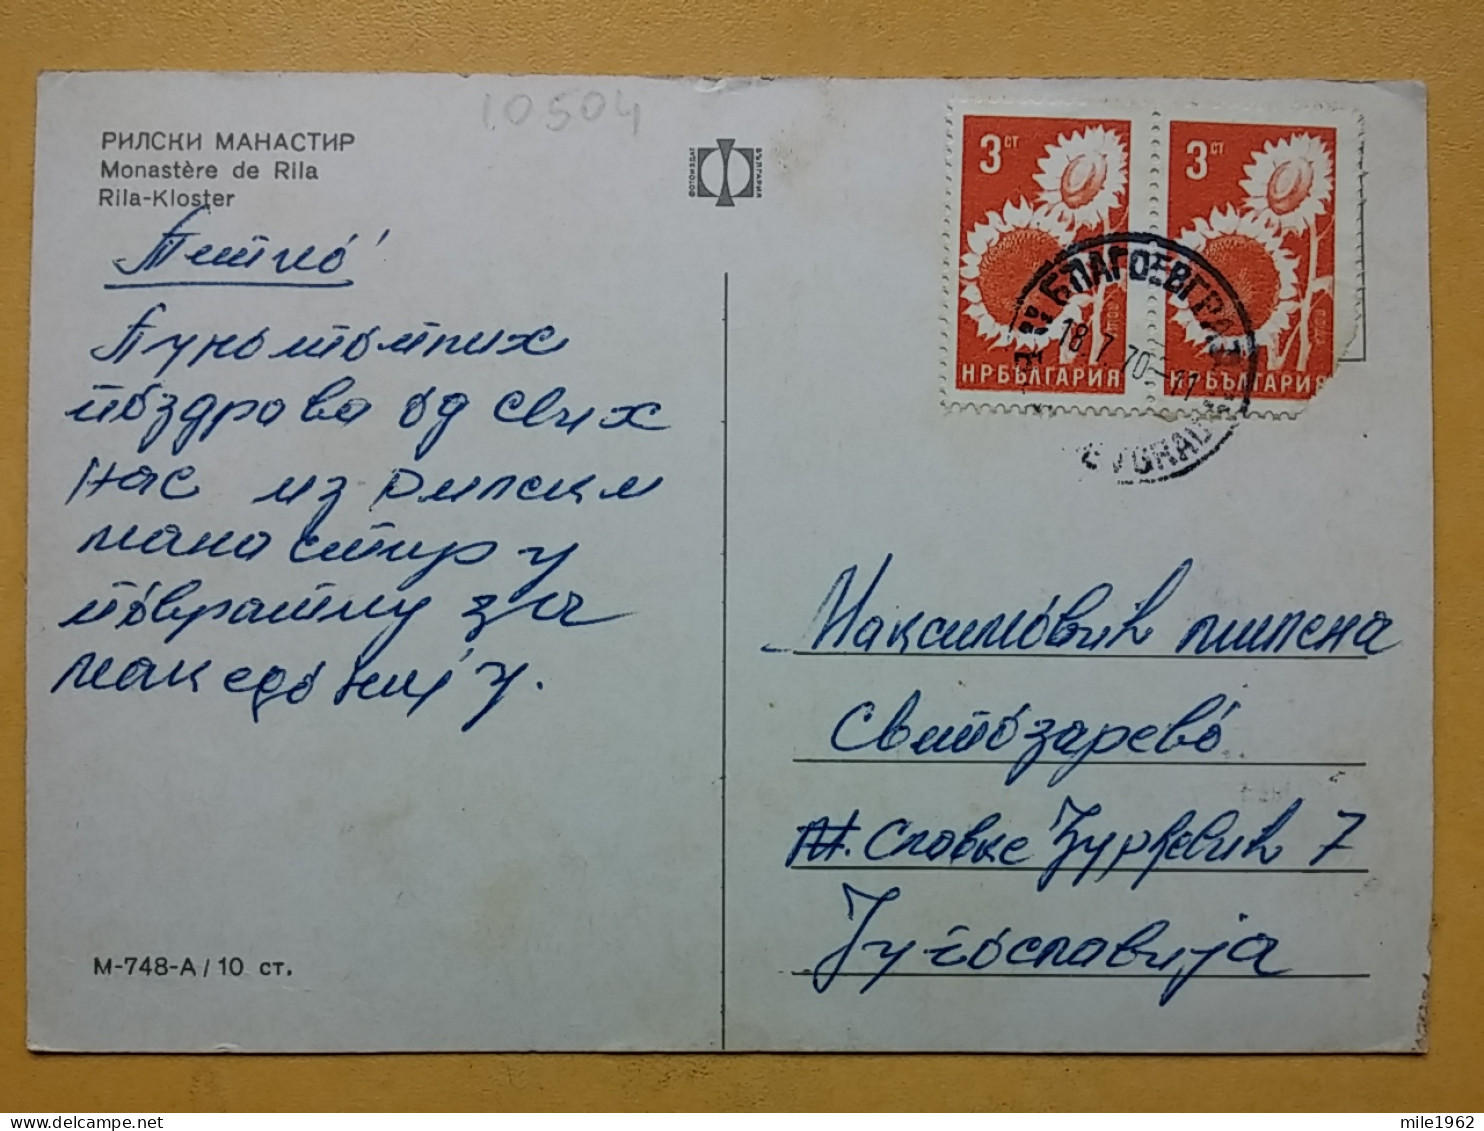 10504
РИЛСКИ МАНАСТИР
Monastère de Rila
Rila-Kloster
ФОТОИЗДАТ
БЪЛГАРИЯ
3 СТ
3 СТ
НРБЪЛГАРИЯ
НРБЪЛГАРИЯ
БЛАГОЕВГРАД
18.7.70-11
пуно топлих
поздрава од свих
нас из рилски
манастир у
повратку за
македонију.
Максимовић милена
Светозарево
М. Славке Ђурђевић 7
Југославија
М-748-А / 10 ст.
mile1962